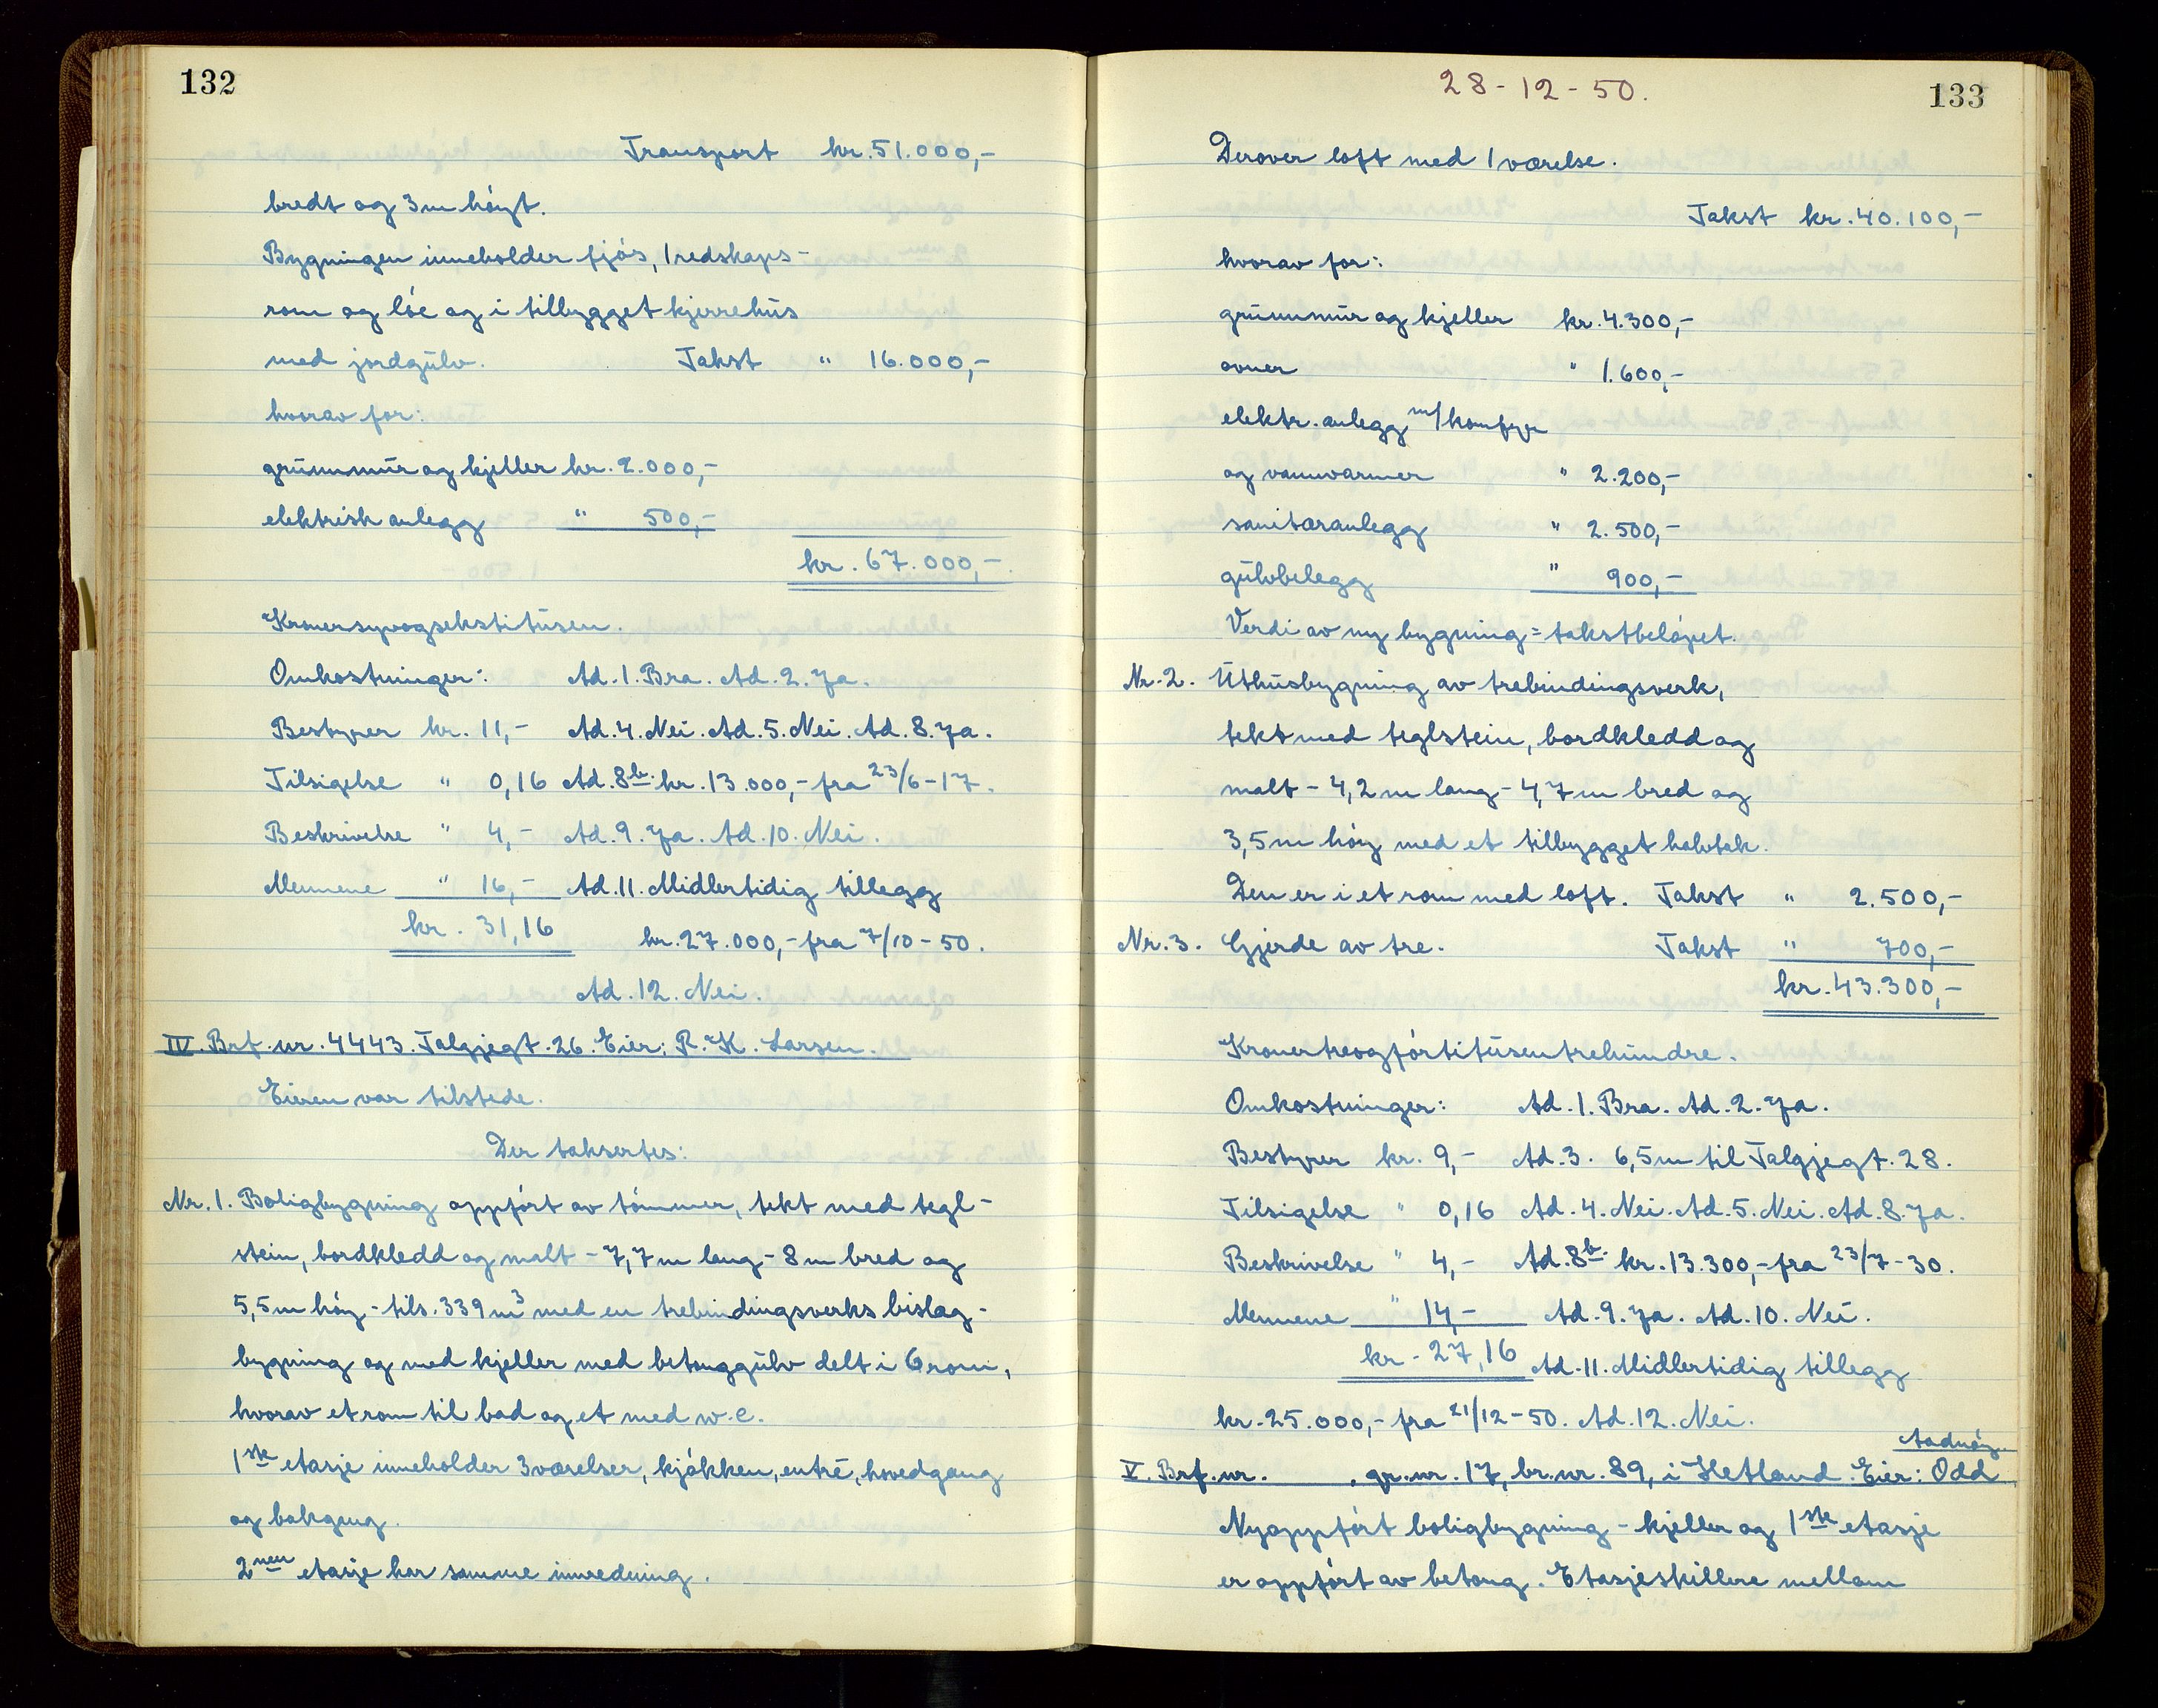 132
Transport kr. 51.000,-
bredt og 3 m høyt.
Bygningen inneholder fjøs, 1 redskaps-
rom og løe og i tilbygget kjerrehus
med jordgulv. Takst " 16.000,-
hvorav for:
grunnmur og kjeller kr. 2.000,-
elektrisk anlegg " 500,-
kr. 67.000,-
Kronersyvogsekstitusen.
Omkostninger: Ad. 1. Bra. Ad. 2. Ja.
Bestyrer kr. 11,- Ad. 4. Nei. Ad. 5. Nei. Ad. 8. Ja.
Tilsigelse " 0,16 Ad. 8b. kr. 13.000,- fra 23/6-17.
Beskrivelse " 4,- Ad. 9. Ja. Ad. 10. Nei.
Mennene " 16,- Ad. 11. Midlertidig tillegg
kr. 31,16 kr. 27.000,- fra 7/10-50.
Ad. 12. Nei.
IV. Brf. nr. 4443. Talgjegt. 26. Eier: R. K. Larsen.
Eieren var tilstede.
Der taksertes:
Nr. 1. Boligbygning oppført av tømmer, tekt med tegl-
stein, bordkledd og malt - 7,7 m lang - 8 m bred og
5,5 m høy - tils. 339 m3 med en trebindingsverks bislag-
bygning og med kjeller med betonggulv delt i 6 rom,
hvorav et rom til bad og et med w.c.
1ste etasje inneholder 3 værelser, kjøkken, entré, hovedgang
og bakgang.
2nen etasje har samme innredning.
28-12-50.
133
Derover loft med 1 værelse.
Takst kr. 40.100,-
hvorav for:
grunnmur og kjeller kr. 4.300,-
ovner " 1.600,-
elektr. anlegg m/komfyr
og vannvarmer " 2.200,-
sanitæranlegg " 2.500,-
gulvbelegg " 900,-
Verdi av ny bygning = takstbeløpet.
Nr. 2. Uthusbygning av trebindingsverk,
tekt med teglstein, bordkledd og
malt - 4,2 m lang - 4,7 m bred og
3,5 m høy med et tilbygget halvtak.
Den er i et rom med loft. Takst " 2.500,-
Nr. 3. Gjerde av tre. Takst " 700,-
kr. 43.300,-
Kronertreogførtitusentrehundre.
Omkostninger: Ad. 1. Bra. Ad. 2. Ja.
Bestyrer kr. 9,- Ad. 3. 6,5 m til Talgjegt. 28.
Tilsigelse " 0,16 Ad. 4. Nei. Ad. 5. Nei. Ad. 8. Ja.
Beskrivelse " 4,- Ad. 8b. kr. 13.300,- fra 23/7-30.
Mennene " 14,- Ad. 9. Ja. Ad. 10. Nei.
kr. 27,16 Ad. 11. Midlertidig tillegg
kr. 25.000,- fra 21/12-50. Ad. 12. Nei.
Aadnøy.
V. Brf. nr. , gr. nr. 17, br. nr. 89, i Hetland. Eier: Odd
Nyoppført boligbygning - kjeller og 1ste etasje
er oppført av betong. Etasjeskillere mellom